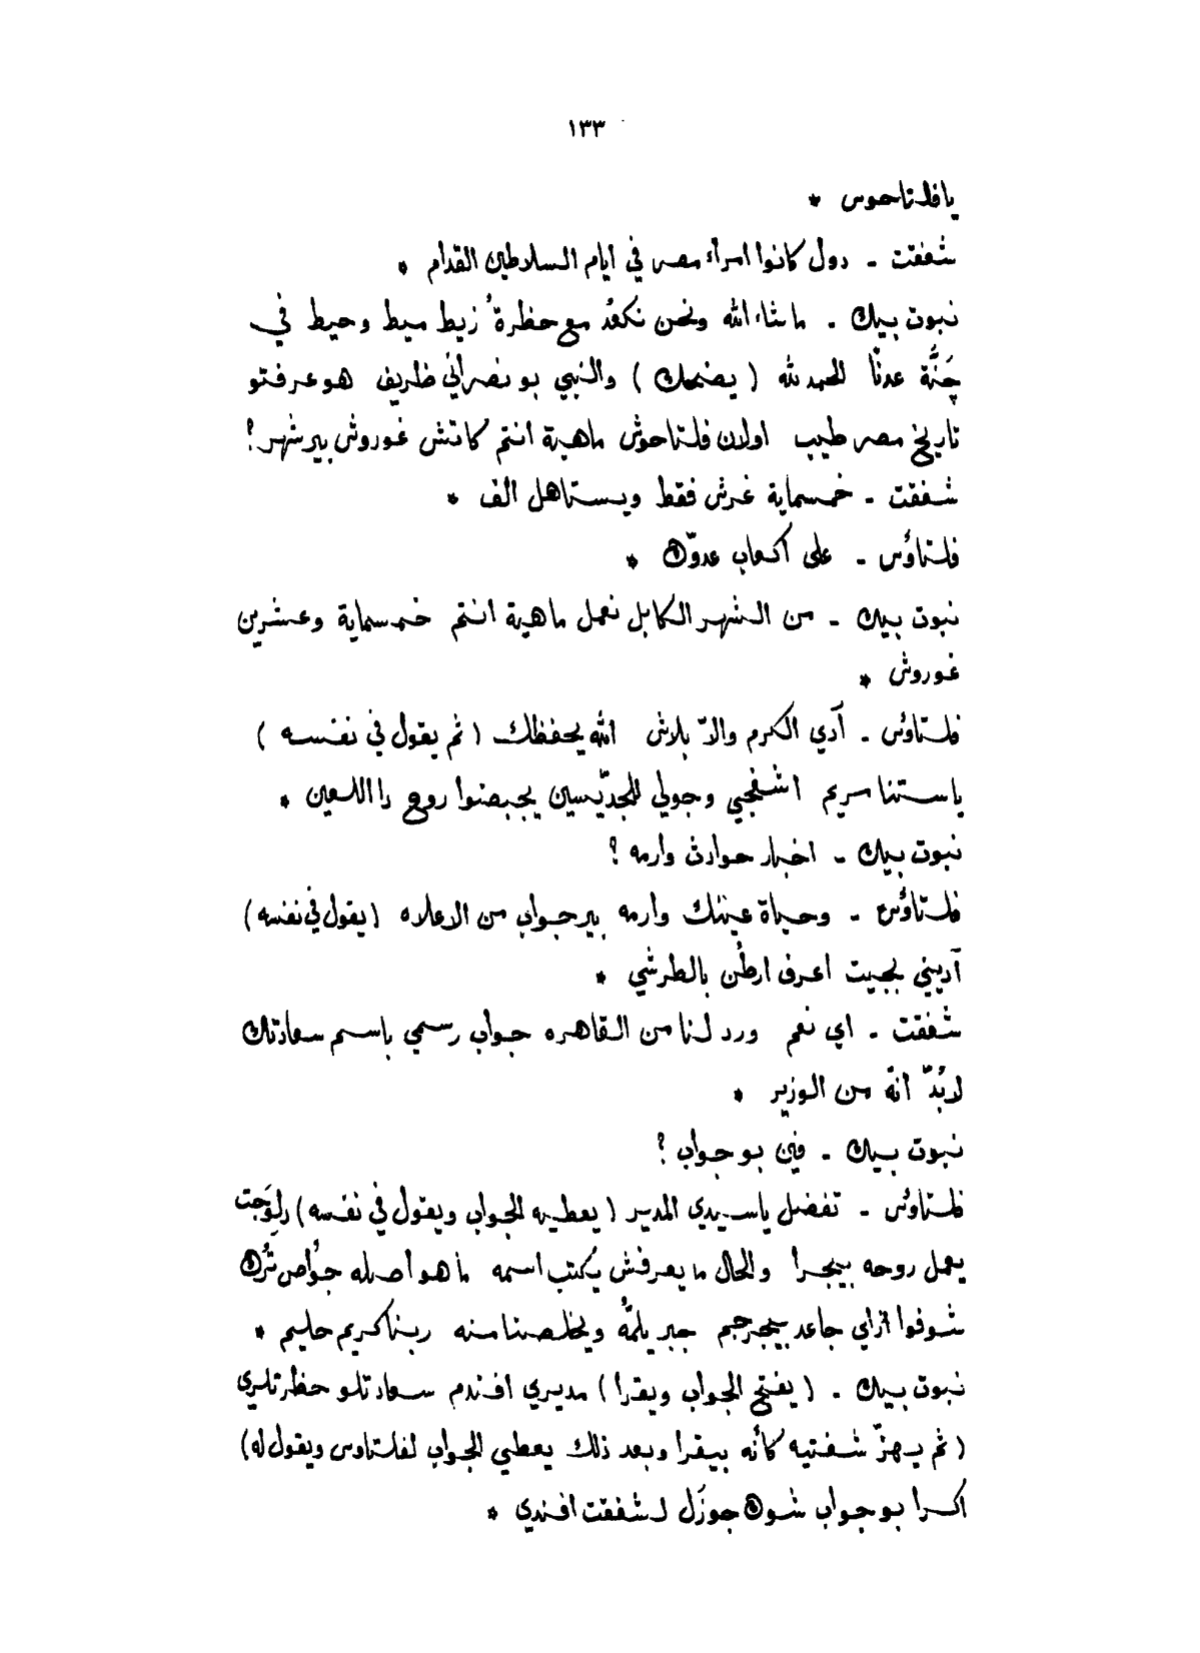 ١٣٣
يا فلتاحوس *
شفقت - دول كانوا امرآء مصر في ايام السلاطين القدام *
نبوت بيك - ما شاء الله ونحن نكعد مع حظرة زيط ميط وحيط في
جَنَّة عدنًا الحمد لله ( يضحك ) والنبي بو نصراني ظريف هو عرفتو
تاريخ مصر طيب اولان فلتاحوش ماهية انتم كاتش غوروش بير شهر ؟
شفقت - خمسماية غرش فقط ويستاهل الف *
فلتاؤس - على اكعاب عدوّك *
نبوت بيك - من الشهر الكابل نعمل ماهية انتم خمسماية وعشرين
غوروش *
فلتاؤس - آدي الكرم والاّ بلاش الله يحفظك ( ثم يقول في نفسه )
يا ستنا مريم اشفجي وجولي للجدّيسين يجبضوا روح دا اللعين *
نبوت بيك - اخبار حوادث وارمه ؟
فلتاؤس - وحياة عينك وارمه بير جواب من الاعلاه ( يقول في نفسه )
آديني بجيت اعرف ارطُن بالطرشي *
شفقت - اي نعم ورد لنا من القاهره جواب رسمي باسم سعادتك
لابُدّ انهّ من الوزير *
نبوت بيك - فين بو جواب ؟
فلتاؤس - تفضل يا سيدي المدير ( يعطيه الجواب ويقول في نفسه ) دلِوَجت
يعمل روحه بيجرا والحال ما يعرفش يكتب اسمه ما هو اصله جوّاص تُرك
شوفوا ازاي جاعد بيجرجم جبر يلمُّه ويخلصنا منه ربنا كريم حليم *
نبوت بيك - ( يفتح الجواب ويقرا ) مديري افندم سعادتلو حظرتلري
( ثم يهزّ شفتيه كأنه بيقرا وبعد ذلك يعطي الجواب لفلتاوس ويقول له )
اكرا بو جواب شوك جوزَل لشفقت افندي *